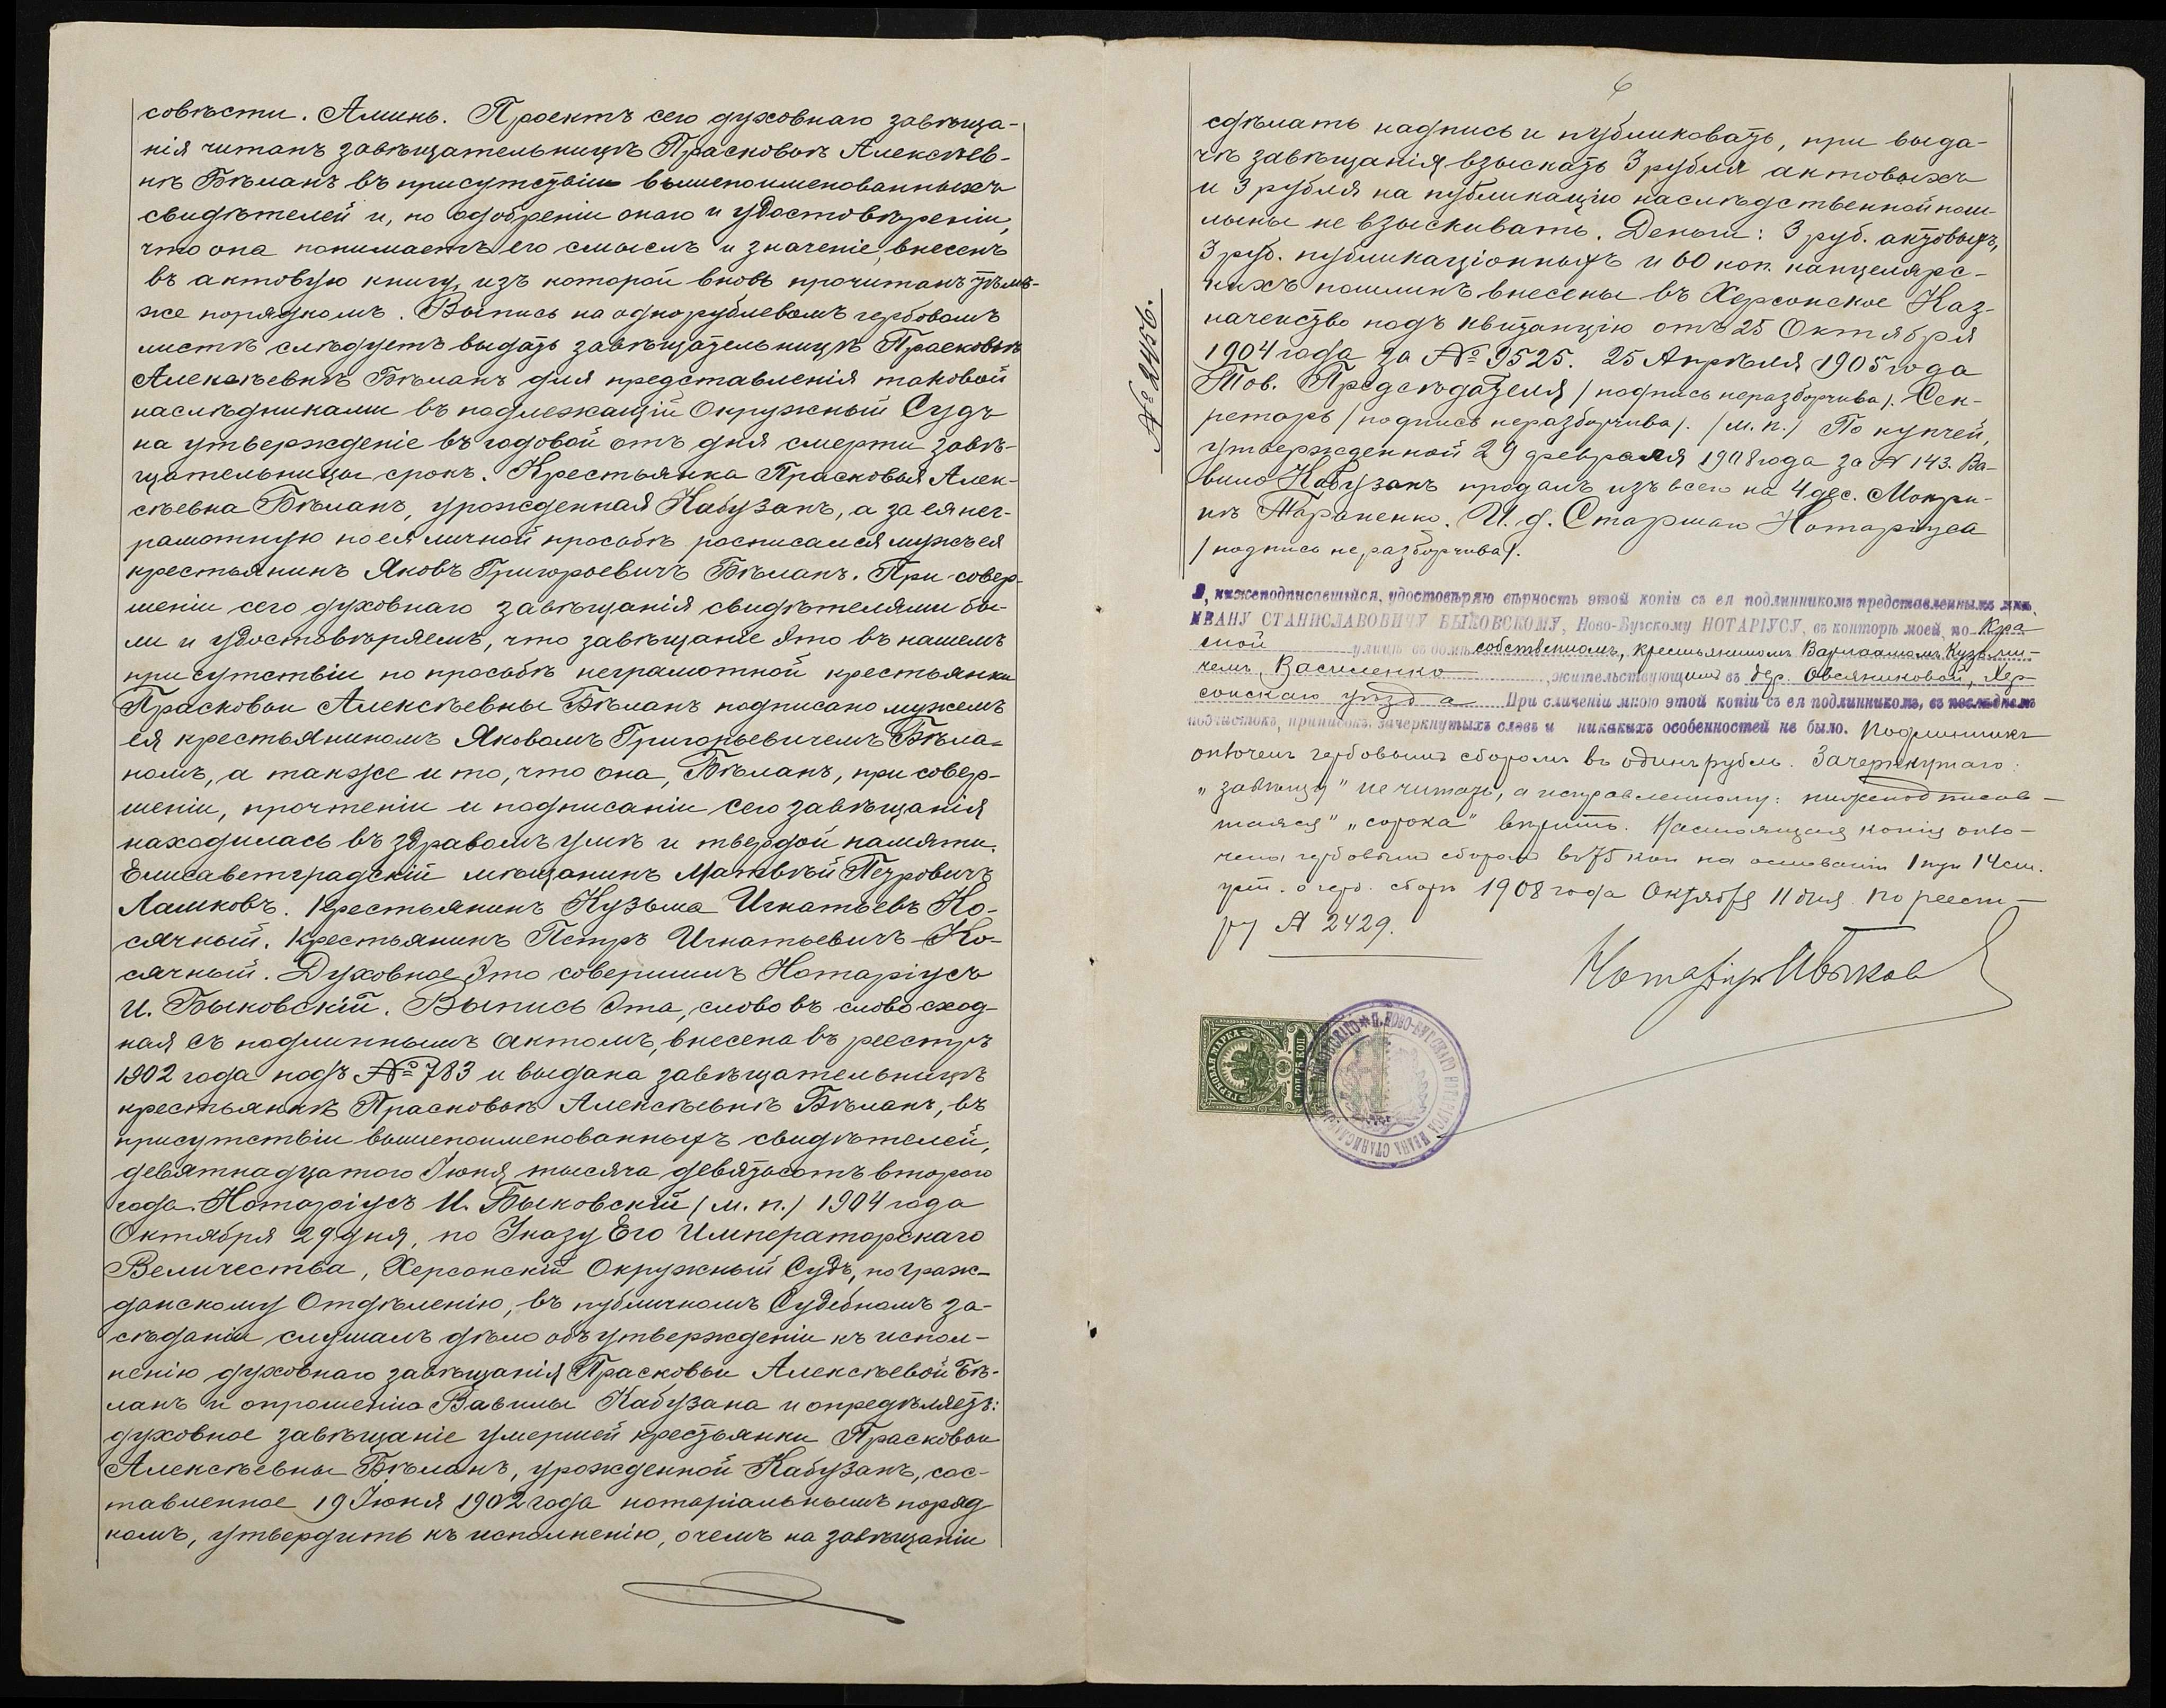 совѣсти. Аминь. Проектъ сего духовнаго завѣща-
нія читанъ завѣщательницѣ Прасковьѣ Алексѣев-
нѣ Бѣланъ въ присутствіи вышепоименованныхъ
свидѣтелей и, по одобреніи онаго и удостовѣреніи,
что она понимаетъ его смыслъ и значеніе, внесенъ
въ актовую книгу, изъ которой вновь прочитанъ тѣмъ-
же порядкомъ. Выпись на однорублевомъ гербовомъ
листѣ слѣдуетъ выдать завѣщательницѣ Прасковьѣ
Алексѣевнѣ Бѣланъ для представленія таковой
наслѣдниками въ надлежащій Окружный Судъ
на утвержденіе въ годовой отъ дня смерти завѣ-
щательницы срокъ. Крестьянка Прасковья Алек-
сѣевна Бѣланъ, урожденная Кабузанъ, а за ея нег-
рамотную по ея личной просьбѣ росписался мужъ ея
крестьянинъ Яковъ Григорьевичъ Бѣланъ. При совер-
шеніи сего духовнаго завѣщанія свидѣтелями бы-
ли и удостовѣряемъ, что завѣщаніе это въ нашемъ
присутствіи по просьбѣ неграмотной крестьянки
Прасковьи Алексѣевны Бѣланъ подписано мужемъ
ея крестьяниномъ Яковомъ Григорьевичемъ Бѣла-
номъ, а также и то, что она, Бѣланъ, при совер-
шеніи, прочтеніи и подписаніи сего завѣщанія
находилась въ здравомъ умѣ и твердой памяти.
Елисаветградскій мѣщанинъ Матвѣй Петровичъ
Лашковъ. Крестьянинъ Кузьма Игнатьевъ Ко-
сячный. Крестьянинъ Петръ Игнатьевичъ Ко-
сячный. Духовное это совершилъ Нотаріусъ
И. Быковскій. Выпись эта, слово въ слово сход-
ная съ подлиннымъ актомъ, внесена въ реестръ
1902 года подъ № 783 и выдана завѣщательницѣ
крестьянкѣ Прасковьѣ Алексѣевнѣ Бѣланъ, въ
присутствіи вышепоименованныхъ свидѣтелей,
девятнадцатого Іюня тысяча девятьсотъ второго
года. Нотаріусъ И. Быковскій /м. п./ 1904 года
Октября 29 дня, по Указу Его Императорскаго
Величества, Херсонскій Окружный Судъ, по Граж-
данскому Отдѣленію, въ публичномъ Судебномъ за-
сѣданіи слушалъ дѣло объ утвержденіи къ испол-
ненію духовнаго завѣщанія Прасковьи Алексѣевой Бѣ-
ланъ и опрошенію Вавилы Кабузана и опредѣляетъ:
духовное завѣщаніе умершей крестьянки Прасковьи
Алексѣевны Бѣланъ, урожденной Кабузанъ, сос-
тавленное 19 Іюня 1902 года нотаріальнымъ поряд
комъ, утвердить къ исполненію, о чемъ на завѣщаніи
6
сдѣлать надпись и публиковать, при выда-
чѣ завѣщанія взыскать 3 рубля актовыхъ
и 3 рубля на публикацію наслѣдственной пош-
лины не взыскивать. Деньги: 3 руб. актовыхъ,
3 руб. публикаціонныхъ и 60 коп. канцелярс-
кихъ пошлинъ внесены въ Херсонское Каз-
начейство подъ квитанцію отъ 25 Октября
1904 года за № 9525. 25 Апрѣля 1905 года
Тов. Предсѣдателя /подпись неразборчива/. Сек-
ретарь /подпись неразборчива/. /м. п./ По купчей,
утвержденной 29 февраля 1908 года за № 143. Ва-
вило Кабузанъ продалъ изъ всего на 4 дес. Мокри-
нѣ Тараненко. И. д. Старшаго Нотаріуса
/подпись неразборчива/.
№ 2456.
Я, нижеподписавшійся, удостовѣряю вѣрность этой копіи съ ея подлинникомъ представленнымъ мнѣ,
ИВАНУ СТАНИСЛАВОВИЧУ БЫКОВСКОМУ, Ново-Бугскому НОТАРІУСУ, въ конторѣ моей, по Кра
сной улицѣ въ домѣ собственномъ, крестьяниномъ Варлаамомъ Кузьми-
чемъ Василенко, жительствующимъ въ дер. Овсяниковой, Хер-
сонскаго уѣзда При сличеніи мною этой копіи съ ея подлинникомъ, въ послѣднемъ
подчистокъ, приписокъ, зачеркнутыхъ словъ и никакихъ особенностей не было. Подлинникъ
оплоченъ гербовымъ сборомъ въ одинъ рубль. Зачеркнутаго:
„завѣщу" не читать, а исправленному: нижеподписав-
шаяся" „сорока" вѣрить. Настоящая копія опло-
чена гербовымъ сборомъ въ 75 коп на основаніи 1 пун 14 ст.
уст. о герб. сборѣ 1908 года Октября 11 дня. По реест-
ру № 2429.
Нотаріусъ ИБыков
ГЕРБОВАЯ МАРКА
75 КОП